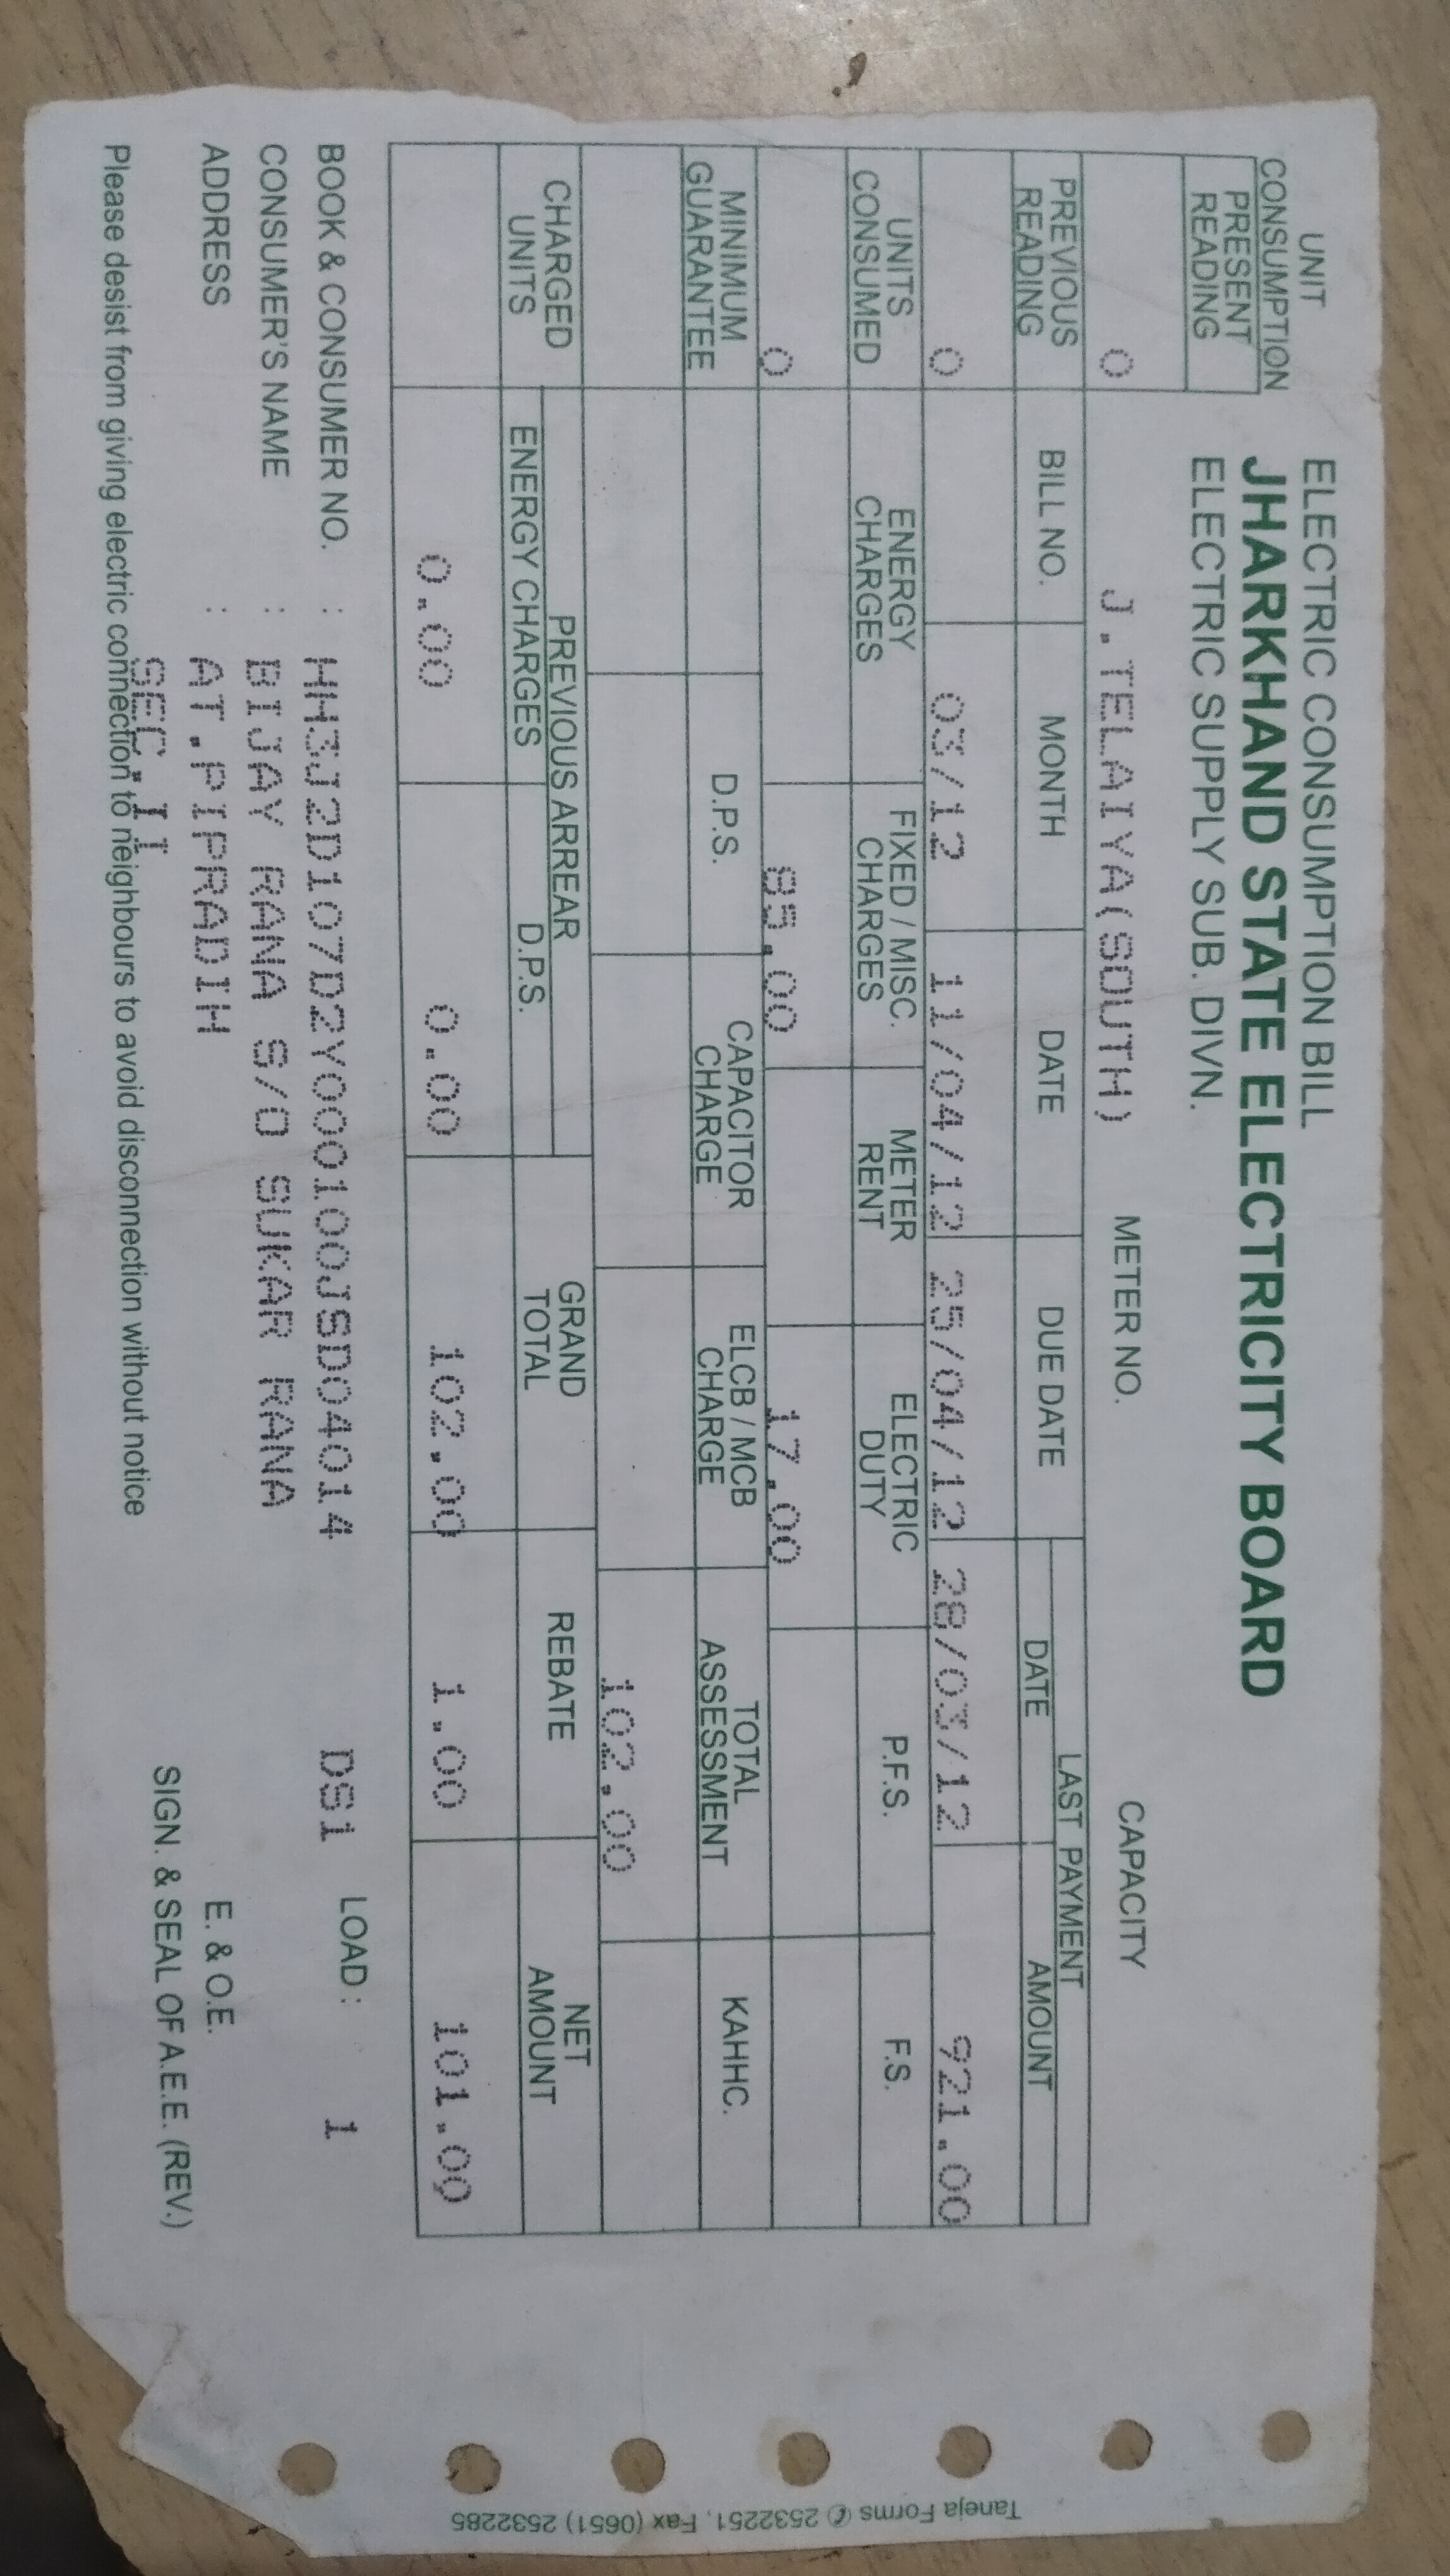 ELECTRIC CONSUMPTION BILL
JHARKHAND STATE ELECTRICITY BOARD
ELECTRIC SUPPLY SUB. DIVN.
UNIT
CONSUMPTION
PRESENT
READING
0
J.TELAIYA(SOUTH) METER NO. CAPACITY
PREVIOUS
READING
0
BILL NO. MONTH DATE DUE DATE LAST PAYMENT
DATE AMOUNT
03/12 11/04/12 25/04/12 28/03/12 921.00
UNITS
CONSUMED
0
ENERGY
CHARGES
FIXED / MISC.
CHARGES
METER
RENT
ELECTRIC
DUTY
P.F.S. F.S.
85.00 17.00
MINIMUM
GUARANTEE
D.P.S.
CAPACITOR
CHARGE
ELCB / MCB
CHARGE
TOTAL
ASSESSMENT
KAHHC.
102.00
CHARGED
UNITS
PREVIOUS ARREAR
ENERGY CHARGES D.P.S.
GRAND
TOTAL
REBATE
NET
AMOUNT
0.00 0.00 102.00 1.00 101.00
BOOK & CONSUMER NO. : HH3J2D107D2Y000100JSD04014 DS1 LOAD : 1
CONSUMER'S NAME : BIJAY RANA S/O SUKAR RANA
ADDRESS : AT.PIPRADIH
E. & O.E.
SEC.II
SIGN. & SEAL OF A.E.E. (REV.)
Please desist from giving electric connection to neighbours to avoid disconnection without notice
Taneja Forms ✆ 2532251, Fax (0651) 2532285